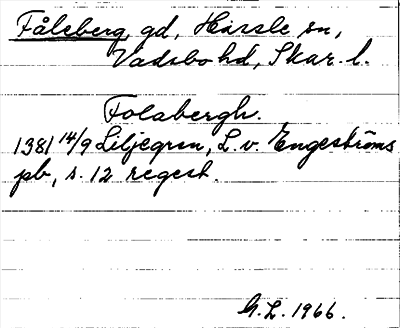 Fåleberg, gd, Hassle sn,
Vadsbo hd, Skar. l.
Folabergh.
1381 14/9 Liljegren, L. v. Engeströms
pb, s. 12 regest.
G. L. 1966.